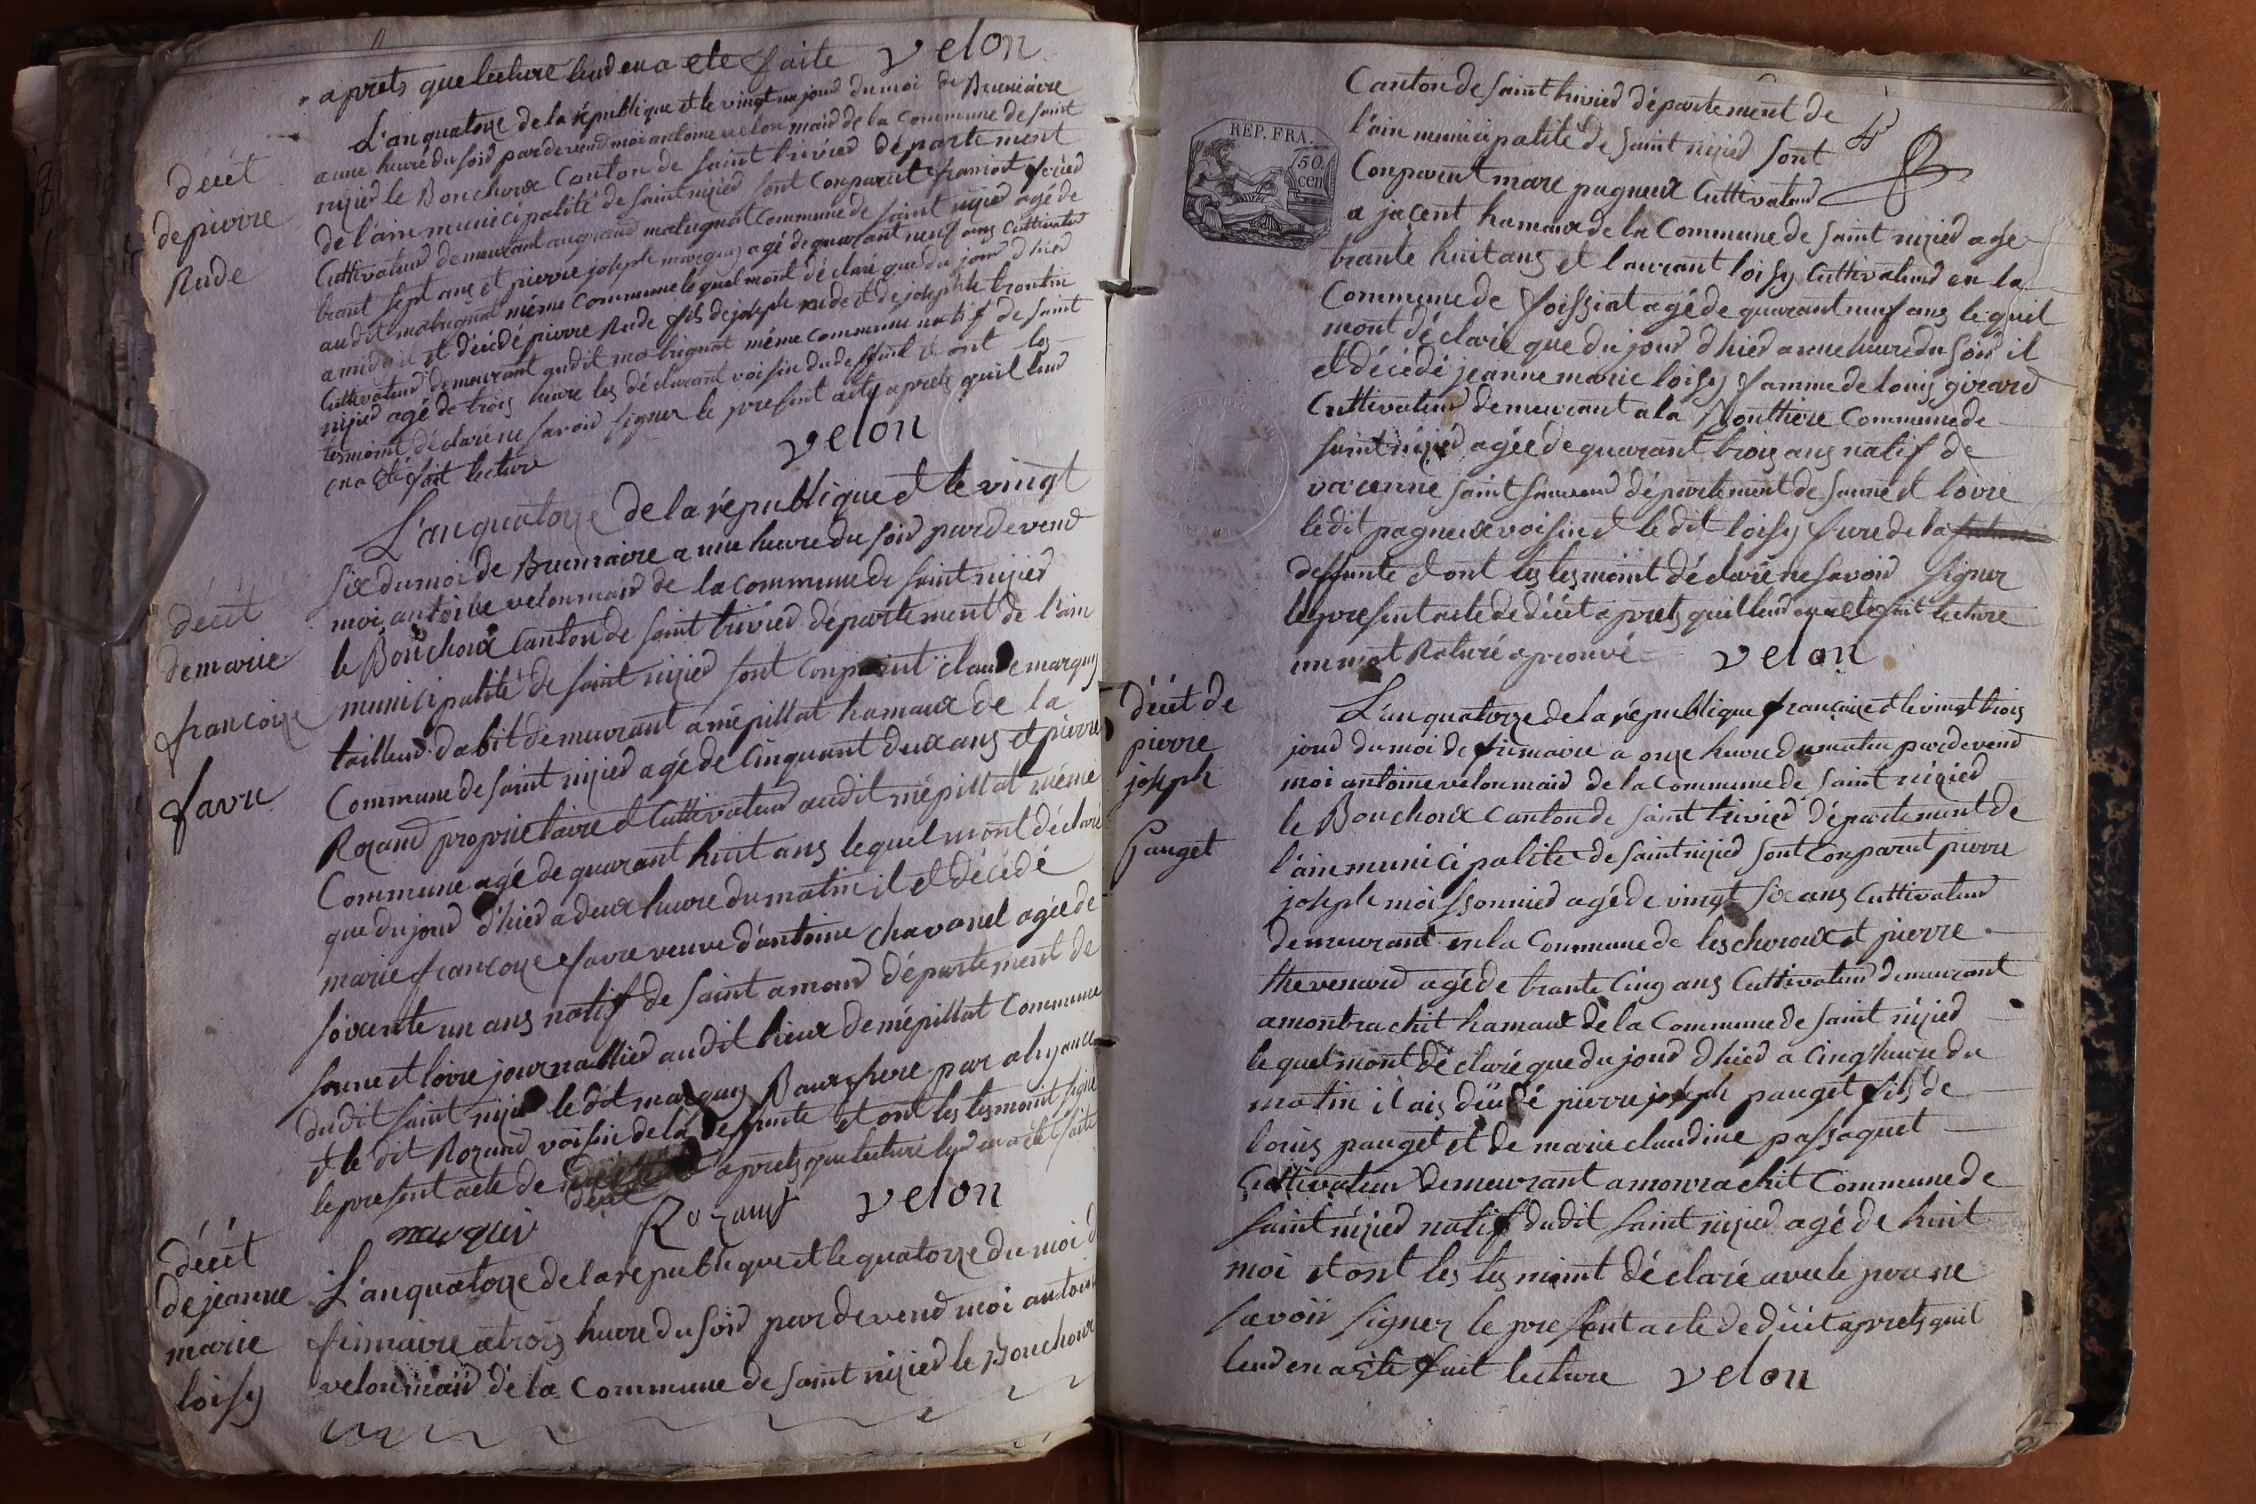 aprets que lecture leud en a ete faite velon
décét
de pierre
Rude
L'an quatorze de la république et le vingt un jour du moi de Brumaire
a une heure du soid par devend moi antoine velon maid de la commune de saint
nizied le Bouchoux Canton de saint trivied département
de l'ain municipalité de saint nizied sont Conparut
Cultivateud demeurant au grand malugnat Commune de saint nizied agé de
trant sept ans et pierre joseph marquis agé de quarant neuf ans Cultivateud
audit même Commune lequel mont déclaré que du jour d'hied
a midi il et décédé pierre Rude fils de joseph rude et de josephte trontin
Cultivateud demeurant audit même commune natif de saint
nizied agé de trois heure les déclarant voisin du deffunt et ont les
tesmoint déclaré ne savoid signer le present acte aprets quil leud
en a Eté fait lecture velon
décét
de marie
francoize
favre
L'an quatorze de la république et le vingt
six du moi de Brumaire a une heure du soid par devend
moi antoine velon maid de la commune de saint nizied
le Bouchoux Canton de saint trivied département de l'ain
municipalité de saint nizied sont Conparut claude marquis
tailleud d'abit demeurant a mépillat hamaux de la
Commune de saint nizied agé de Cinquant deux ans et pierre
Rozand proprietaire et Cultivateud audit mépillat même
Commune agé de quarant huit ans lequel mont déclaré
que du jour d'hied a deux heure du matin il et décédé
marie francoize favre veuve d'antoine chavanel agée de
soixante un ans natif de saint amoud département de
soune et loire journallied audit lieux de mépillat Commune
dudit saint nizied le dit marquis Beaux frere par alyance
et le dit Rozand voisin de la deffunte et ont les tesmoint signé
le present acte de décét aprets que lecture leud en a eté faite
marquis Rozand velon
décét
de jeanne
marie
loisy
L'an quatorze de la république et le quatorze du moi d
frimaire a trois heure du soid par devend moi antoine
velon maid de la Commune de saint nizied le Bouchoux
REP. FRA.
50
cen
Canton de saint trivied département de
l'ain municipalité de saint nizied sont
Conparut marc pagneux Cultivateud
a jacent hamaux de la Commune de saint nizied agé
trante huit ans et laurant loisy Cultivateud en la
Commune de foissiat agé de quarant neuf ans lequil
mont déclaré que du jour d'hied a une heure du soid il
et décédé jeanne marie loisy famme de louis girard
Cultivateud demeurant a la Commune de
saint nizied agée de quarant trois ans natif de
varenne saint sauveud département de saune et loire
le dit pagneux voisin et le dit loisy frere de la
deffunte et ont les tesmoint déclaré ne savoid signer
le present acte de décét aprets quil leud en a eté fait lecture
un mot Raturé aprouvé velon
décét de
pierre
joseph
Pauget
L'an quatorze de la république francaize et le vingt trois
jour du moi de frimaire a onze heure du matin par devend
moi antoine velon maid de la Commune de saint nizied
le Bouchoux Canton de saint trivied département de
l'ain municipalité de saint nizied sont Conparut pierre
joseph moissonnied agé de vingt six ans Cultivateud
demeurant en la Commune de leschevoux et pierre
thevenard agé de trante Cinq ans Cultivateud demeurant
a montrachit hamaux de la Commune de saint nizied
lequel mont déclaré que du jour d'hied a Cinq heure du
matin il ais décédé pierre joseph pauget fils de
louis pauget et de marie claudine passaquet
Cultivateud demeurant a monrachit Commune de
saint nizied natif dudit saint nizied agé de huit
moi et ont les tesmoint déclaré avec le pere ne
savoir signer le present acte de décét aprets quil
leud en a Eté fait lecture velon